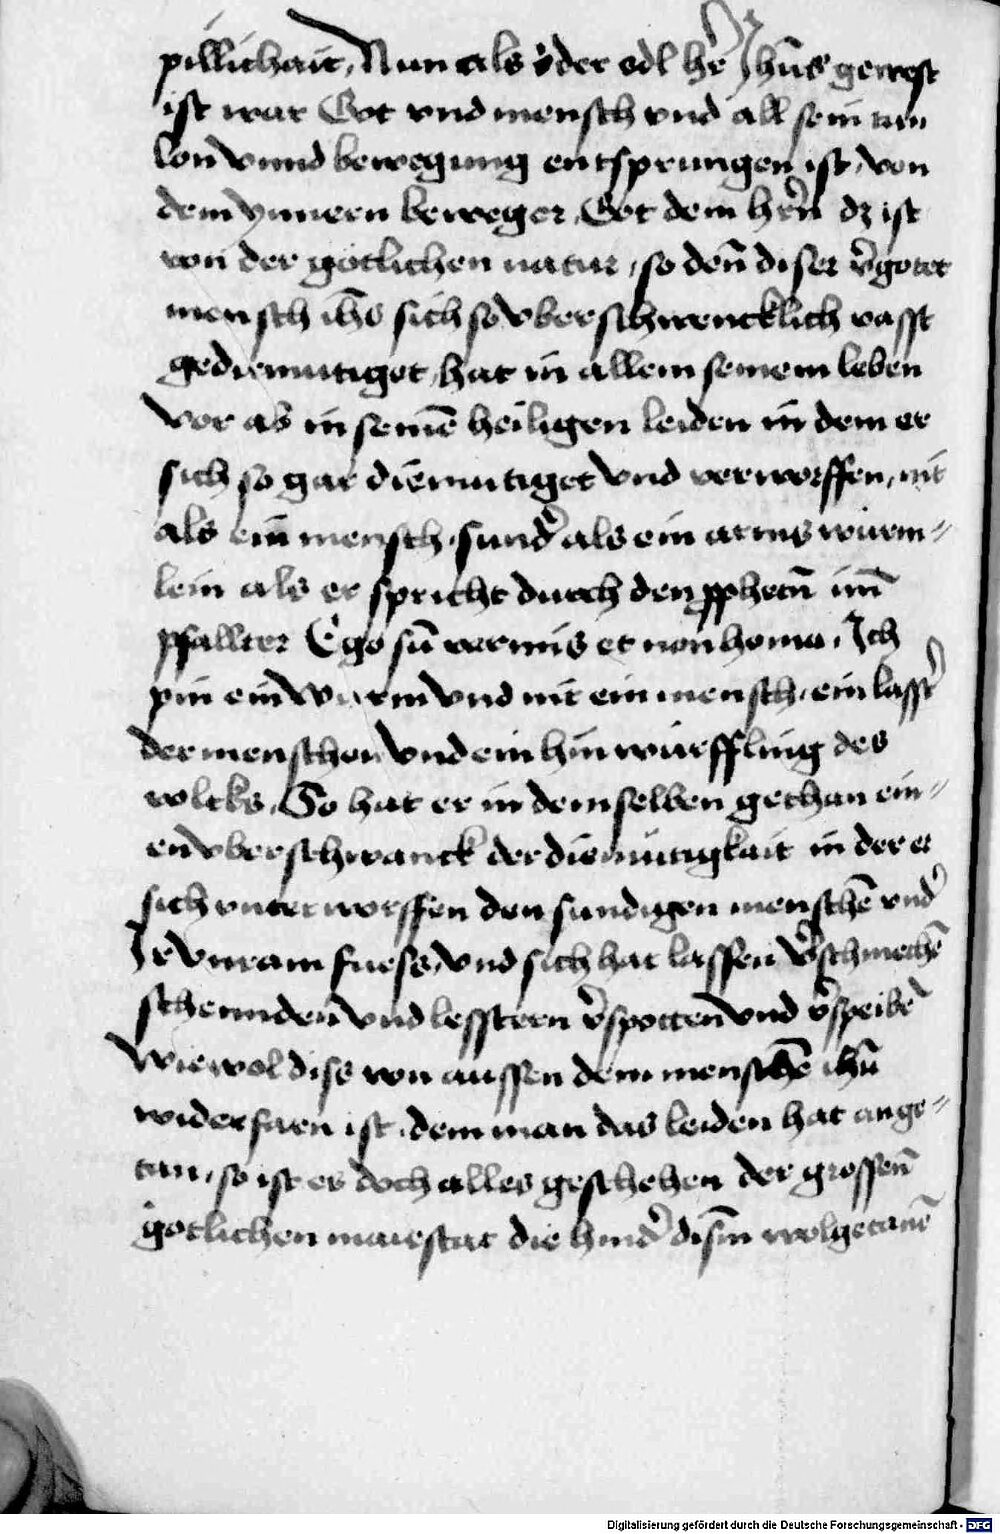 pillichait, Nun als der edl her̄ Jhūs gewest
ist war Got vnd mensch vnd all sein tun
lon vnnd bewegung entsprungen ist, von
dem ynnern beweger, Got dem hrn̄ dz ist
von der gotlichen natur, so den̄ diser v̄gotet
mensch ihs̄ sich so vberschwencklich vasst
gediemutiget, hat in allem seinem leben
vor ab in seinē heiligen leiden in dem er
sich so gar diemutiget vnd verworffen, nit
als ein mensch, sund̄ als ein arms würm=
lein als er spricht durch den ꝓphetn̄ im̄
psallter Ego sū vermis et non homo, Ich
pin ein wurm vnd nit ein mensch, ein lasst̄
der menschen vnd ein hin würffling des
volcks, So hat er in demselben gethan ein=
en vberschwanck der diemütigkait in der er
sich vnterworffen den sundigen menschē vnd̄
Ir vnram fuess, vnd sich hat lassen v̄schmechē
schennden̄ vnd lesstern v̄spotten̄ vnd v̄speibē
Wiewol diss von aussen dem menschē ihū
widerfarn ist, dem man das leiden hat ange=
tan, so ist es doch alles geschehen der grossen̄
gotlichen maiestat die hind̄ dism̄ wolgetanē
Digitalisierung gefördert durch die Deutsche Forschungsgemeinschaft - DFG